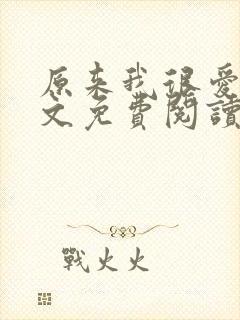 原来我很爱
文免費閱讀
戰火火